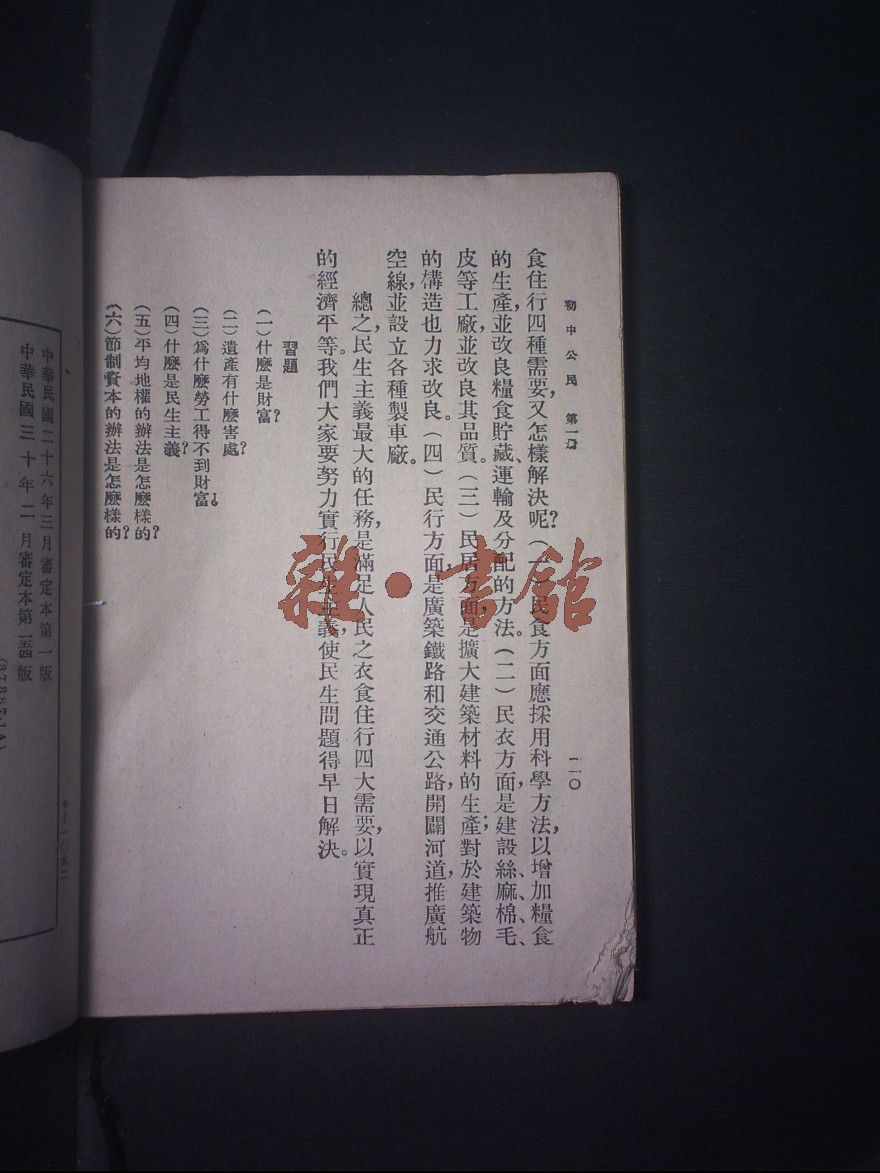 初中公民 第一冊
一一〇
食住行四種需要,又怎樣解決呢?(一)民食方面應採用科學方法,以增加糧食
的生產,並改良糧食貯藏、運輸及分配的方法。(二)民衣方面,是建設絲、麻、棉、毛、
皮等工廠,並改良其品質。(三)民居方面,是擴大建築材料的生產;對於建築物
的構造也力求改良。(四)民行方面是廣築鐵路和交通公路,開闢河道,推廣航
空線,並設立各種製車廠。
總之,民生主義最大的任務,是滿足人民之衣食住行四大需要,以實現真正
的經濟平等。我們大家要努力實行民生主義,使民生問題得早日解決。
習題
(一)什麼是財富?
(二)遺產有什麼害處?
(三)爲什麼勞工得不到財富?
(四)什麼是民生主義?
(五)平均地權的辦法是怎麼樣的?
(六)節制資本的辦法是怎麼樣的?
中華民國二十六年三月審定本第一版
中華民國三十年二月審定本第版
雜·書館